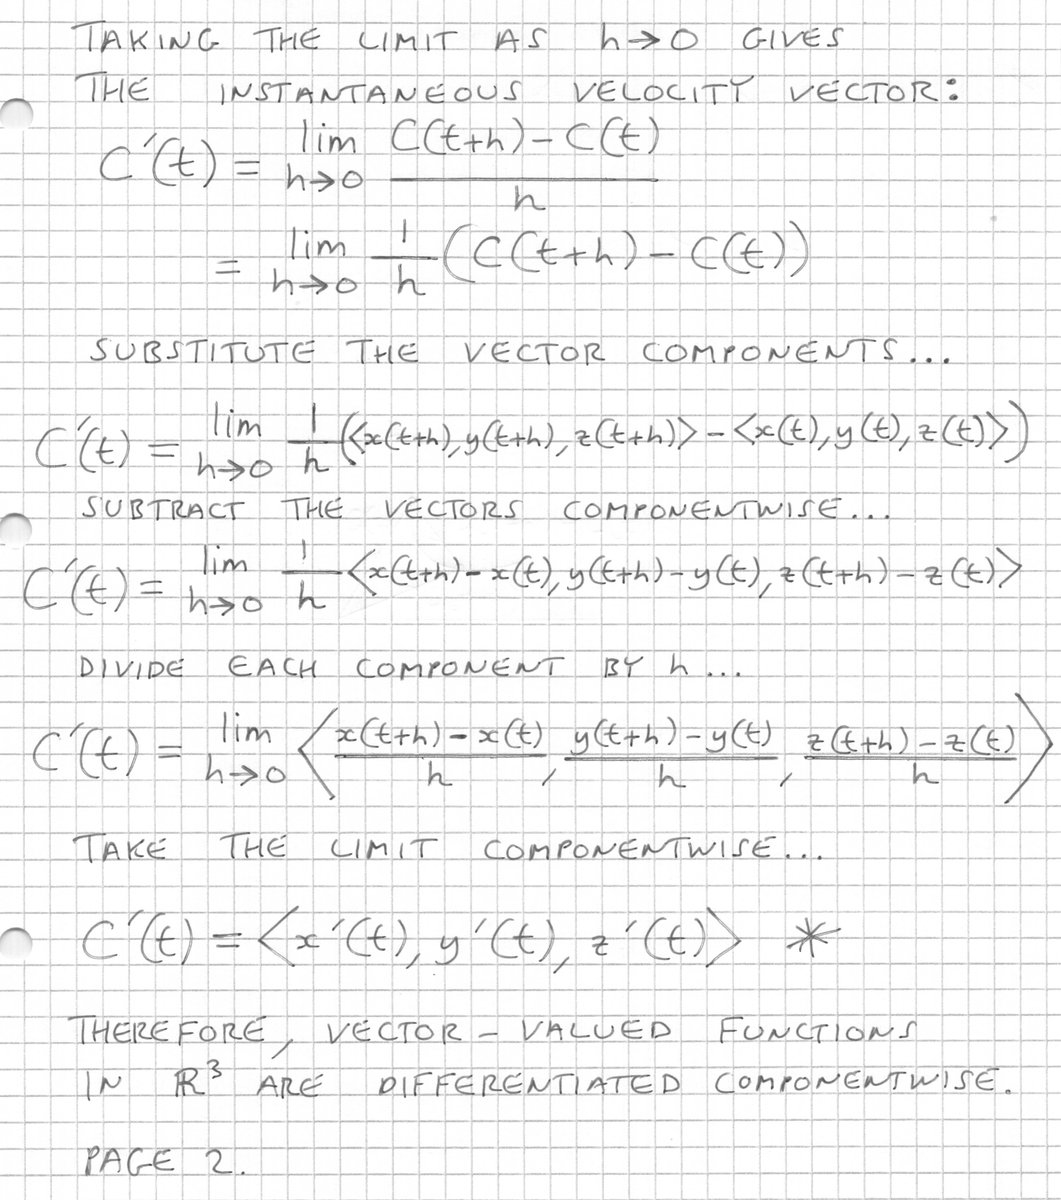 TAKING THE LIMIT AS h→0 GIVES
THE INSTANTANEOUS VELOCITY VECTOR:
C′(t) = lim h→0 (C(t+h) − C(t)) / h
= lim h→0 1/h (C(t+h) − C(t))
SUBSTITUTE THE VECTOR COMPONENTS...
C′(t) = lim h→0 1/h (⟨x(t+h), y(t+h), z(t+h)⟩ − ⟨x(t), y(t), z(t)⟩)
SUBTRACT THE VECTORS COMPONENTWISE...
C′(t) = lim h→0 1/h ⟨x(t+h) − x(t), y(t+h) − y(t), z(t+h) − z(t)⟩
DIVIDE EACH COMPONENT BY h...
C′(t) = lim h→0 ⟨(x(t+h) − x(t)) / h, (y(t+h) − y(t)) / h, (z(t+h) − z(t)) / h⟩
TAKE THE LIMIT COMPONENTWISE...
C′(t) = ⟨x′(t), y′(t), z′(t)⟩ *
THEREFORE, VECTOR-VALUED FUNCTIONS
IN ℝ³ ARE DIFFERENTIATED COMPONENTWISE.
PAGE 2.